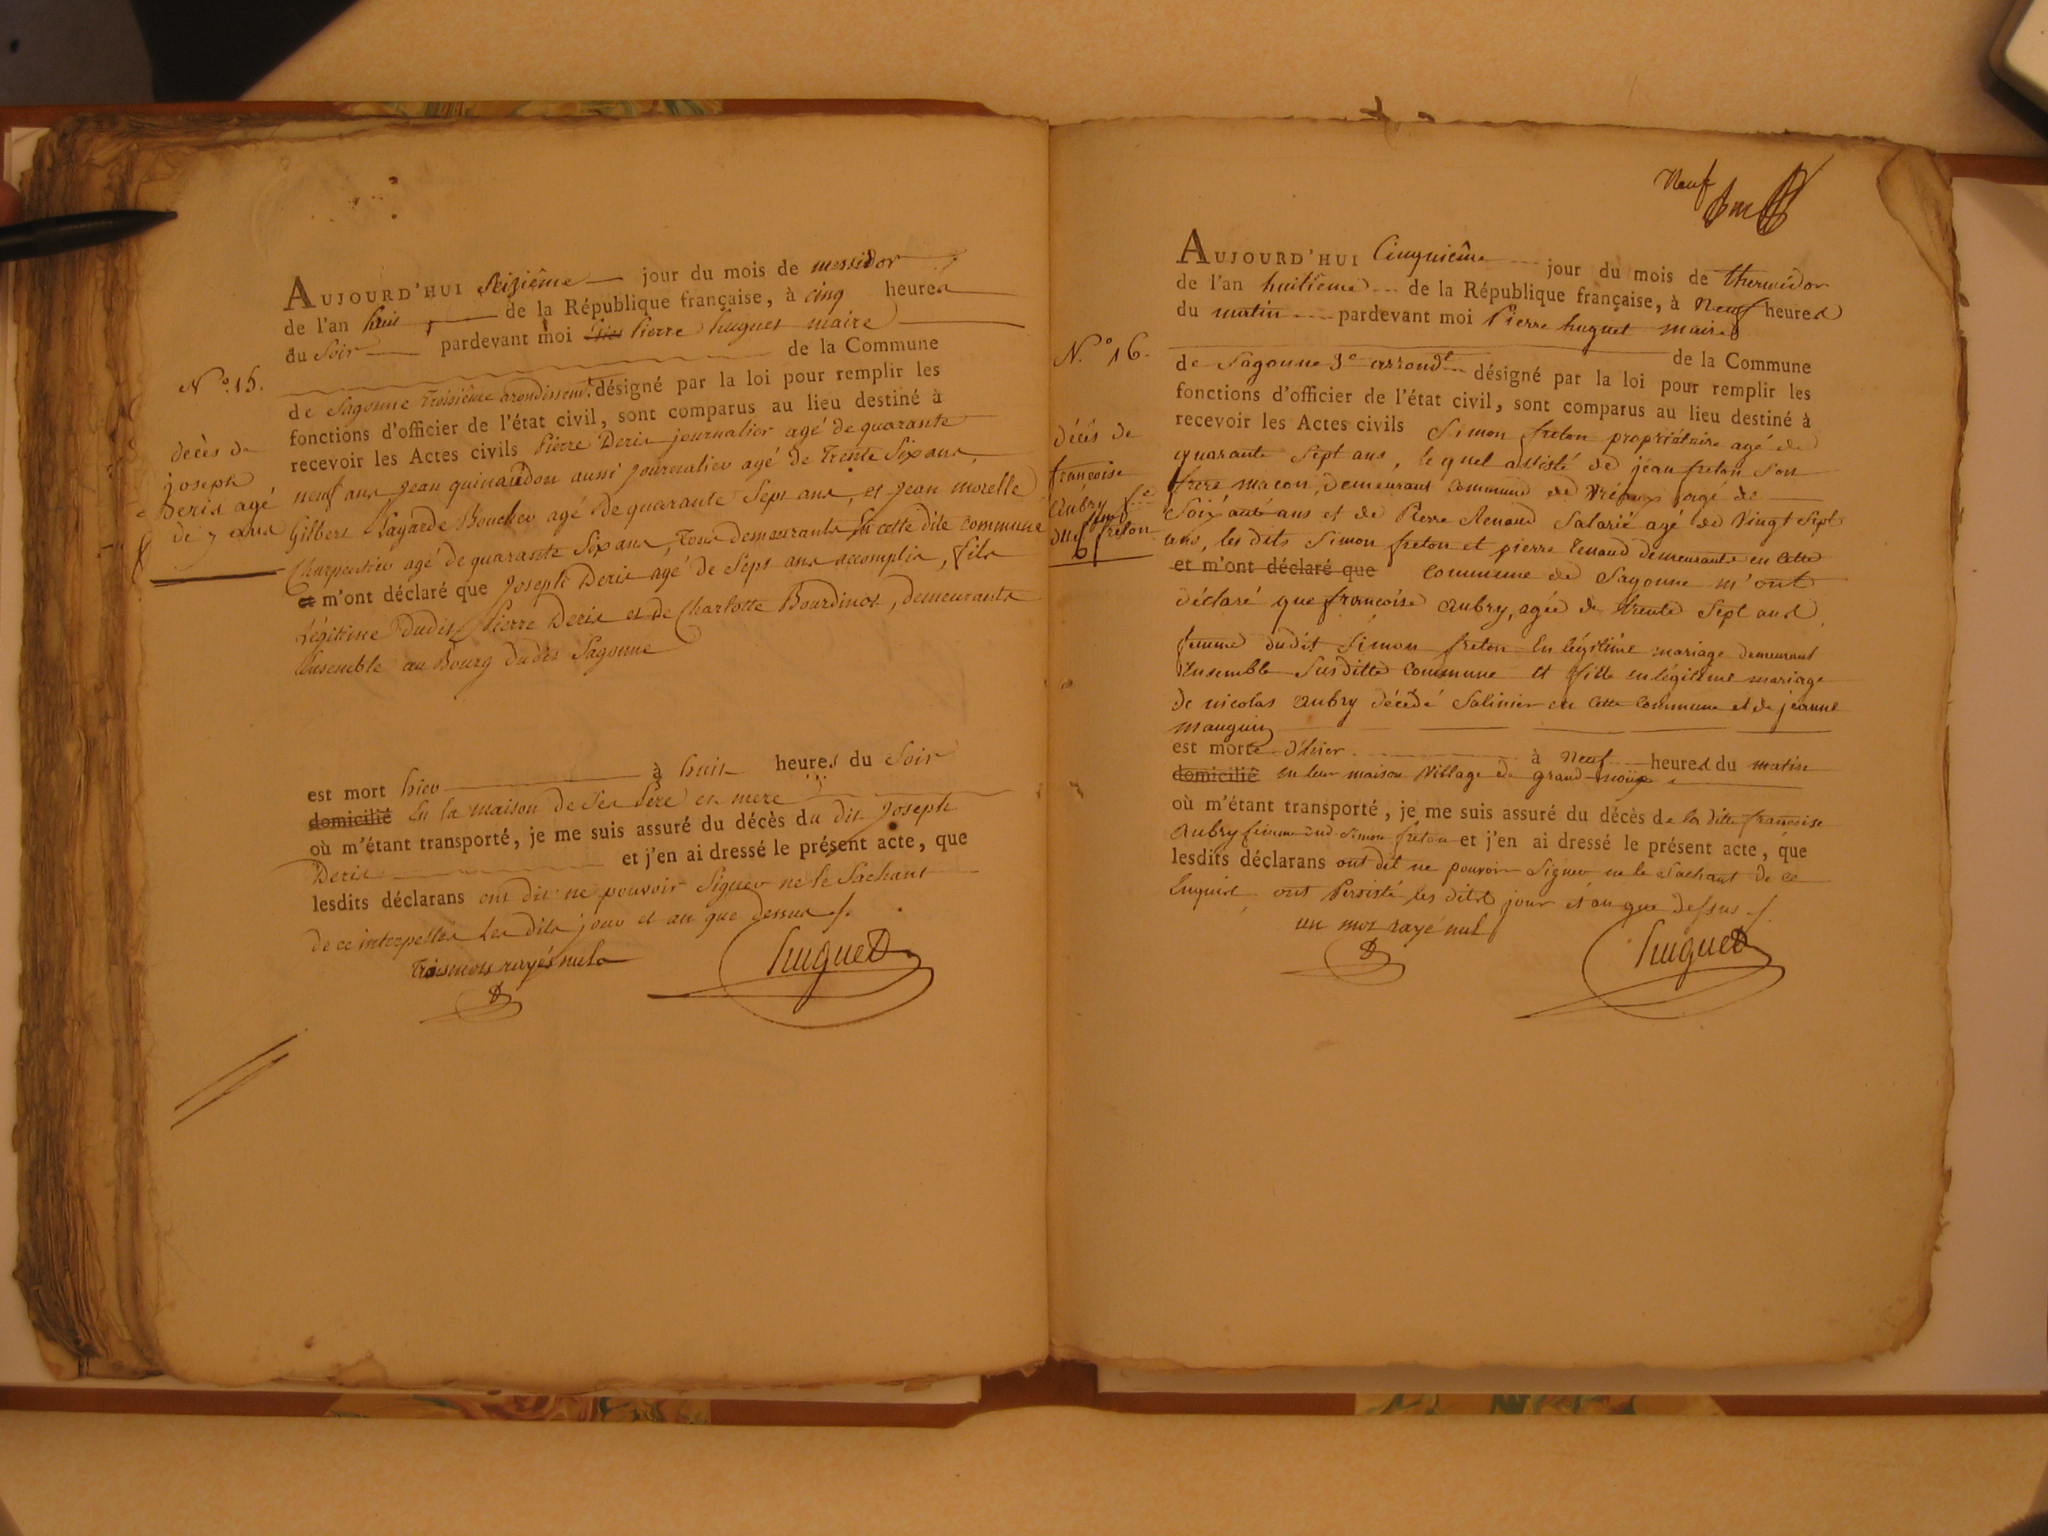 N.° 15.
décès de
joseph
Deris agé
de 7 ans
AUJOURD'HUI Seizième jour du mois de messidor
de l'an huit de la République française, à cinq heures
du Soir pardevant moi Pierre huguet maire
de la Commune
de Sagonne troisième arondissemt. désigné par la loi pour remplir les
fonctions d'officier de l'état civil, sont comparus au lieu destiné à
recevoir les Actes civils Pierre Deris journalier agé de quarante
neuf ans jean quinaudon aussi journalier agé de trente Six ans,
Gilbert Boucher agé de quarante Sept ans, et jean morelle
Charpentier agé de quarante Six ans, tous demeurants En cette dite commune
et m'ont déclaré que joseph Deris agé de Sept ans accomplis, fils
légitime dudit Pierre Deris et de Charlotte Bourdinot, demeurants
Ensemble au Bourg dudit Sagonne
est mort hier à huit heures du Soir
domicilié En la maison de Ses Père et mere
où m'étant transporté, je me suis assuré du décès du dit joseph
Deris et j'en ai dressé le présent acte, que
lesdits déclarans ont dit ne pouvoir Signer ne le Sachant
de ce interpellés les dits jour et an que dessus /.
Trois mots rayés nuls
huguet
Neuf
N.° 16.
Décés de
françoise
Aubry fe
Freton
AUJOURD'HUI Cinquième jour du mois de thermidor
de l'an huitième de la République française, à Neuf heures
du matin pardevant moi Pierre huguet maire
de la Commune
de Sagonne 3e arrondt désigné par la loi pour remplir les
fonctions d'officier de l'état civil, sont comparus au lieu destiné à
recevoir les Actes civils Simon freton propriétaire agé de
quarante Sept ans, lequel assisté de jean freton Son
frere macon, demeurant commune de agé de
Soixante ans et de Pierre Renaud Salarié agé de Vingt Sept
ans, les dits Simon freton et pierre Renaud demeurants en Cette
et m'ont déclaré que Commune de Sagonne m'ont
déclaré que françoise Aubry, agée de trente Sept ans
femme dudit Simon freton En légitime mariage demeurant
Ensemble Susditte Commune et fille en légitime mariage
de nicolas Aubry décédé Salinier en Cette Commune et de jeanne
mauguin
est morte d'hier à Neuf heures du matin
domicilié en leur maison Village de grand
où m'étant transporté, je me suis assuré du décès de la ditte françoise
Aubry femme dud. Simon freton et j'en ai dressé le présent acte, que
lesdits déclarans ont dit ne pouvoir Signer ne le Sachant de ce
Enquist, ont Persisté les dits jour et an que dessus /.
un mot rayé nul
huguet